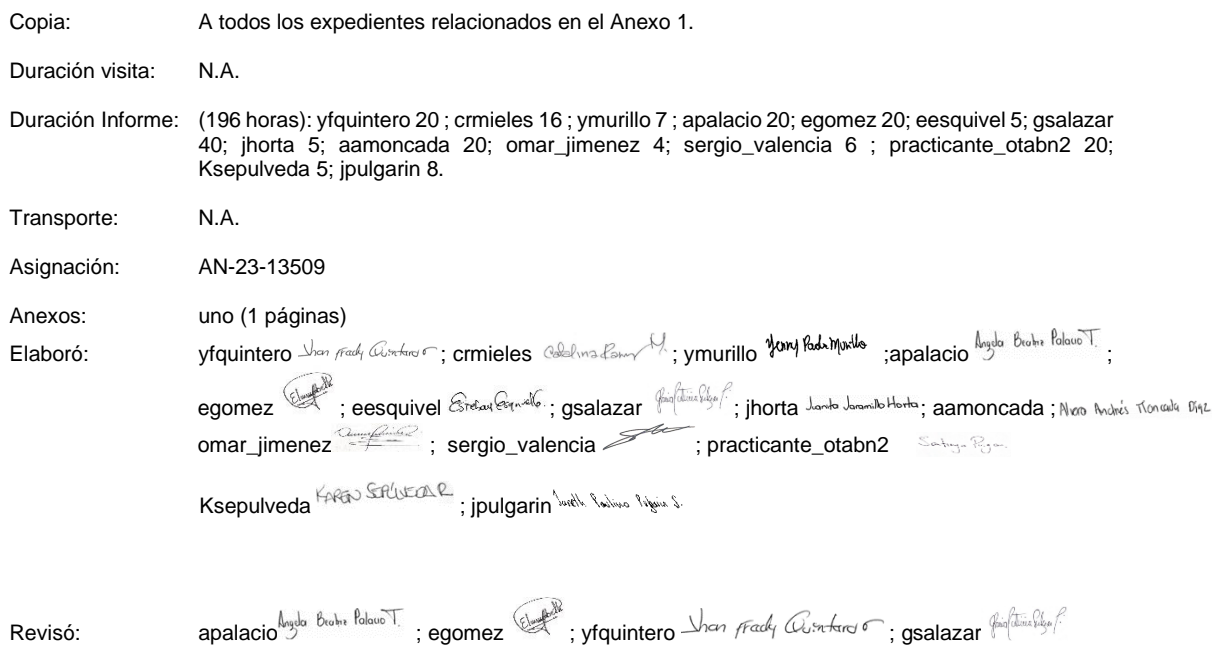 Copia: A todos los expedientes relacionados en el Anexo 1.
Duración visita: N.A.
Duración Informe: (196 horas): yfquintero 20 ; crmieles 16 ; ymurillo 7 ; apalacio 20; egomez 20; eesquivel 5; gsalazar
40; jhorta 5; aamoncada 20; omar_jimenez 4; sergio_valencia 6 ; practicante_otabn2 20;
Ksepulveda 5; jpulgarin 8.
Transporte: N.A.
Asignación: AN-23-13509
Anexos: uno (1 páginas)
Elaboró: yfquintero ; crmieles ; ymurillo ;apalacio Angela Beatriz Palacio T. ;
egomez ; eesquivel Esteban Esquivel ; gsalazar ; jhorta Juanita Jaramillo Horta ; aamoncada ; Alvaro Andrés Moncada Díaz
omar_jimenez ; sergio_valencia ; practicante_otabn2
Ksepulveda KAREN SEPÚLVEDA R ; jpulgarin
Revisó: apalacio Angela Beatriz Palacio T. ; egomez ; yfquintero ; gsalazar